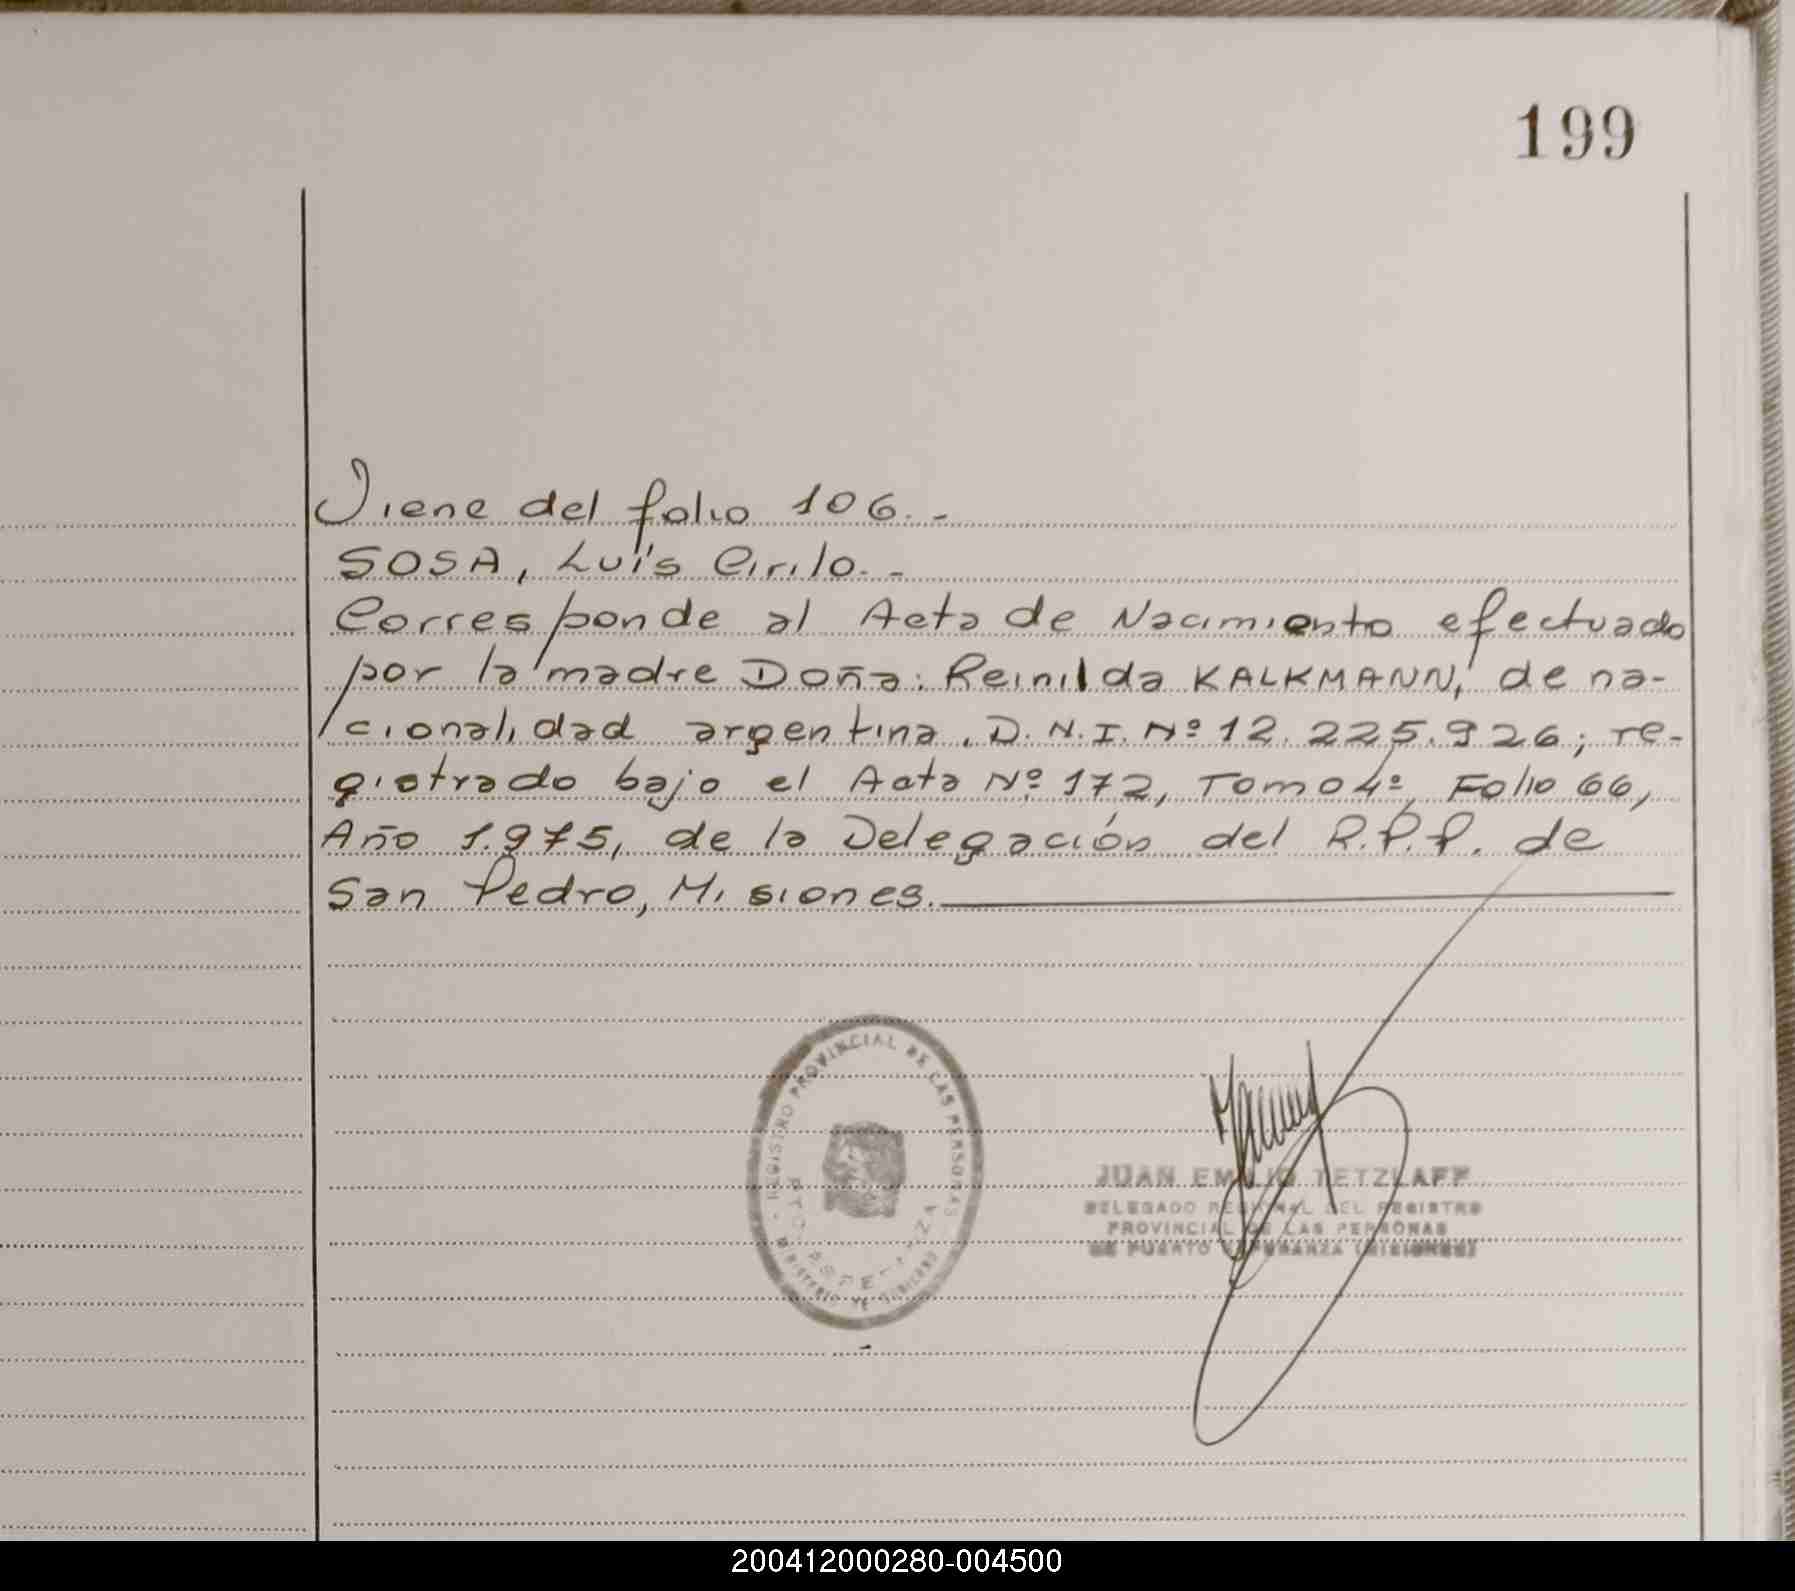 199
Viene del folio 106.-
SOSA, Luis Cirilo.-
Corresponde al Acta de Nacimiento efectuado
por la madre Doña: Reinilda KALKMANN, de na-
cionalidad argentina, D.N.I. Nº 12.225.926; re-
gistrado bajo el Acta Nº 172, Tomo 4º, Folio 66,
Año 1.975, de la Delegación del R.P.P. de
San Pedro, Misiones.
REGISTRO PROVINCIAL DE LAS PERSONAS
MINISTERIO DE GOBIERNO
PTO. ESPERANZA
JUAN EMILIO TETZLAFF
DELEGADO REGIONAL DEL REGISTRO
PROVINCIAL DE LAS PERSONAS
DE PUERTO ESPERANZA (MISIONES)
200412000280-004500